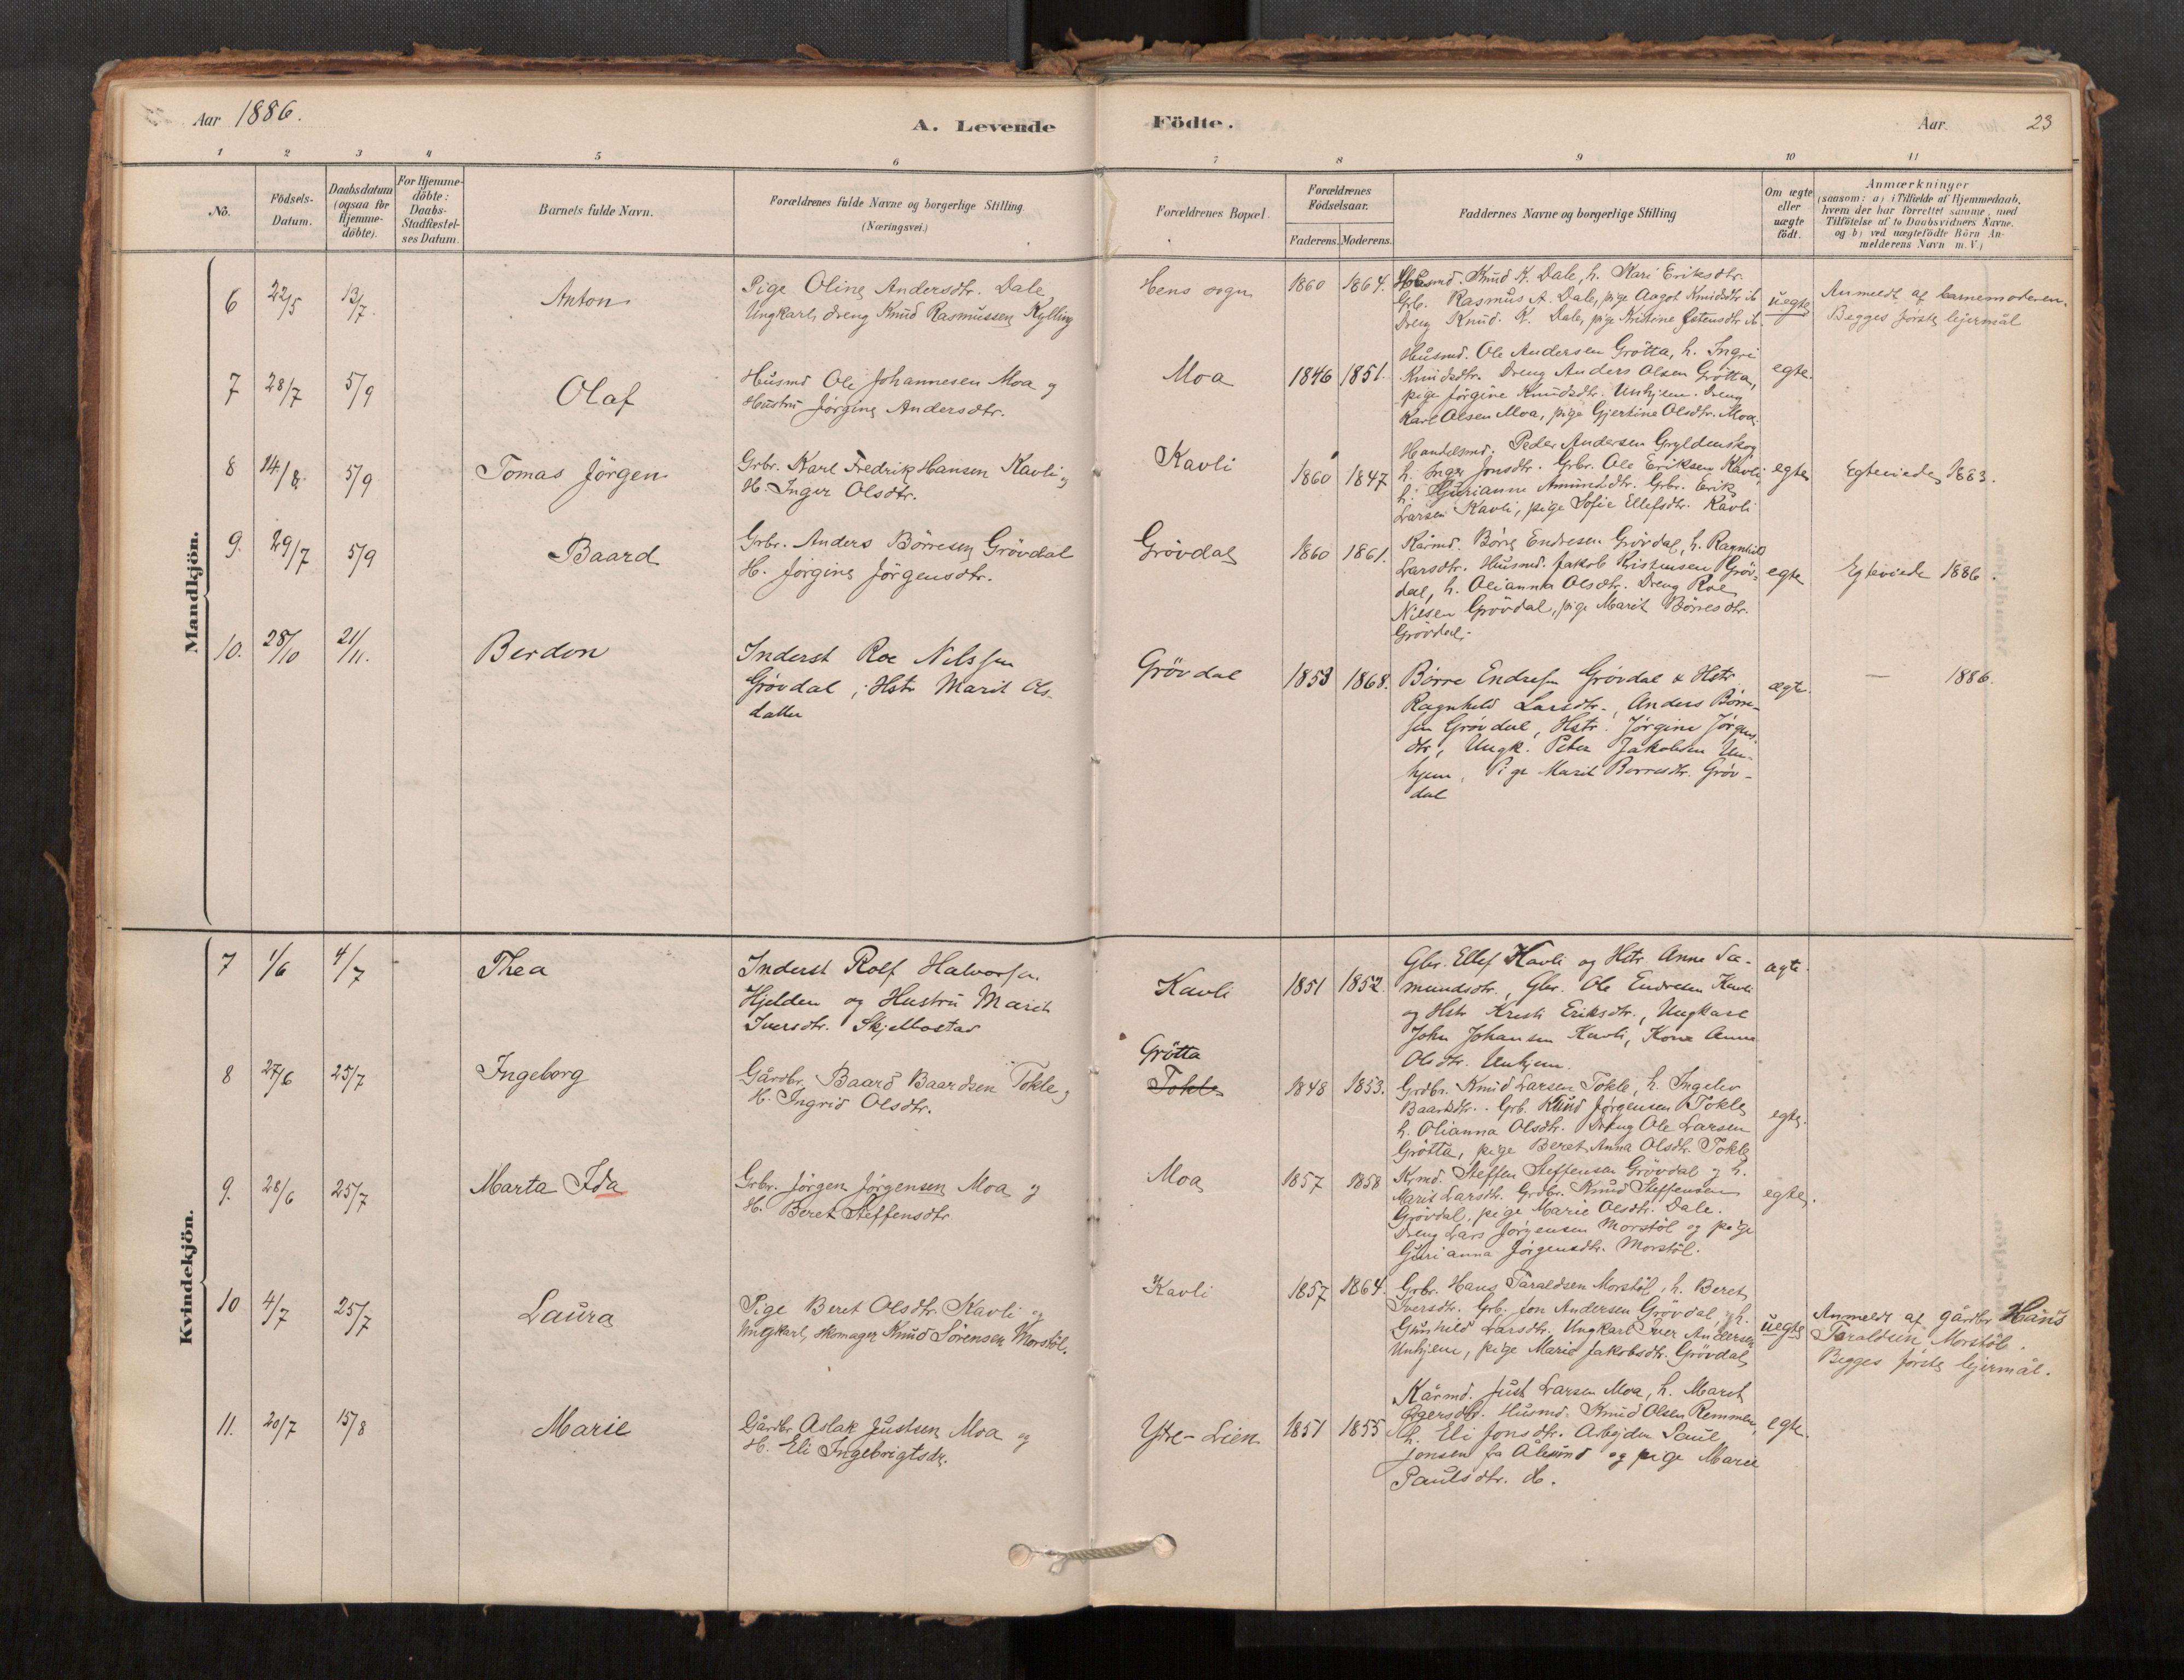 Aar 1886.
A. Levende Födte.
Aar
23
1 2 3 4 5 6 7 8 9 10 11
No.
Födsels-
Datum.
Daabsdatum
(ogsaa for
Hjemme-
döbte).
For Hjemme-
döbte:
Daabs-
Stadfæstel-
ses Datum.
Barnets fulde Navn.
Forældrenes fulde Navne og borgerlige Stilling
(Næringsvei.)
Forældrenes Bopæl.
Forældrenes
Födselsaar.
Faderens. Moderens.
Faddernes Navne og borgerlige Stilling
Om ægte
eller
uægte
födt.
Anmærkninger
(saasom: a) i Tilfælde af Hjemmedaab,
hvem der har forrettet samme, med
Tilföielse af to Daabsvidners Navne.
og b) ved uægtefödte Börn An-
melderens Navn m. V.)
Mandkjön.
6 22/5 13/7. Anton
Pige Oline Andersdtr. Dale
Ungkarl, dreng Knud Rasmussen Kylling
Hens sogn 1860 1864.
Husmd. Knud K. Dale, h. Kari Eriksdtr.
Grb. Rasmus A. Dale, pige Aagot Knudsdtr ib
Dreng Knud K. Dale, pige Kristine Estensdtr ib.
uegte
Anmeldt af barnemoderen.
Begges første lejermål
7 28/7 5/9 Olaf
Husmd Ole Johannesen Moa og
Hustru Jörgine Andersdtr.
Moa 1846 1851.
Husmd. Ole Andersen Grötta, h. Ingri
Knudsdtr. Dreng Anders Olsen Grötta,
pige Jörgine Knudsdtr. Unhjem. Dreng
Karl Olsen Moa, pige Gjertine Olsdtr. Moa.
egte.
8 14/8. 5/9 Tomas Jörgen
Grbr. Karl Fredrik Hansen Kavli og
H. Inger Olsdtr.
Kavli 1860 1847
Handelsmd. Peder Andersen Gryldenskog
h. Inger Jonsdtr. Grbr. Ole Eriksen Kavli,
h. Gurianne Amundsdtr. Grbr. Erik
Larsen Kavli, pige Sofie Ellefsdtr. Kavli
egte
Egteviede 1883.
9. 29/7 5/9 Baard
Grbr. Anders Börresen Grövdal
H. Jörgine Jörgensdtr.
Grövdal 1860 1861.
Kårmd. Börre Endresen Grövdal, h. Ragnhild
Larsdtr. Husmd. Jakob Kristensen Gröv-
dal, h. Olianna Olsdtr. Dreng Roe
Nilsen Grövdal, pige Marit Börresdtr.
Grövdal.
egte
Egteviede 1886.
10. 28/10 21/11. Berdon
Inderst Roe Nilssen
Grövdal, Hstr Marit Ols-
datter
Grövdal 1853 1868.
Börre Endresen Grövdal & Hstr
Ragnhild Larsdtr., Anders Börre-
sen Grövdal, Hstr. Jörgine Jörgens-
dtr, Ungk. Peter Jakobsen Un-
hjem, Pige Marit Borresdtr. Gröv-
dal
ægte.
— 1886.
Kvindekjön.
7 1/6 4/7 Thea
Inderst Rolf Halvorsen
Hjelden og Hustru Marit
Iversdtr. Skjelbostad
Kavli 1851 1852.
Gbr. Ellef Kavli og Hstr Anne Sa-
mundsdtr., Gbr. Ole Endresen Kavli
og Hstr Kristi Eriksdtr., Ungkarl
John Johansen Kavli, Kone Anne
Olsdtr. Unhjem.
ægte.
8 27/6 25/7 Ingeborg
Gårdbr. Baard Baardsen Tokle og
H. Ingrid Olsdtr.
Grötta
Tokle
1848 1853.
Grdbr. Knud Larsen Tokle, h. Ingelev
Baardsdtr. Grb. Knud Jörgensen Tokle,
h. Olianna Olsdtr. Dreng Ole Larsen
Grötta, pige Beret Anna Olsdtr. Tokle
egte.
9. 28/6 25/7 Marta Ida
Grbr. Jörgen Jörgensen Moa og
H. Beret Steffensdtr.
Moa 1857 1858
Krmd. Steffen Steffensen Grövdal og h.
Marit Larsdtr. Grdbr. Knud Steffensen
Grövdal, pige Marie Olsdtr. Dale.
Dreng Lars Jörgensen Morstöl og pige
Gurianna Jörgensdtr. Morstöl.
egte.
10 4/7 25/7 Laura
Pige Beret Olsdtr. Kavli og
Ungkarl, skomager Knud Sörensen Morstöl.
Kavli 1857 1864.
Grbr. Hans Taraldsen Morstöl, h. Beret
Iversdtr. Grb. Jon Andersen Grövdal, og h.
Gunhild Larsdtr. Ungkarl Iver Andersen
Unhjem, pige Marie Jakobsdtr. Grövdal
uegte
Anmeldt af gårdbr Hans
Taraldsen Morstöl.
Begges første lejermål.
11. 20/7 15/8 Marie
Gårdbr Aslak Justsen Moa og
H. Eli Ingebrigtsdr.
Ytre-Lien 1851 1855
Kårmd. Just Larsen Moa, h. Maret
Husmd. Knud Olsen Remmen,
h. Eli Jonsdtr. Arbejder Paul
Jonsen fra Ålesund og pige Marie
Paulsdtr. ib.
egte.